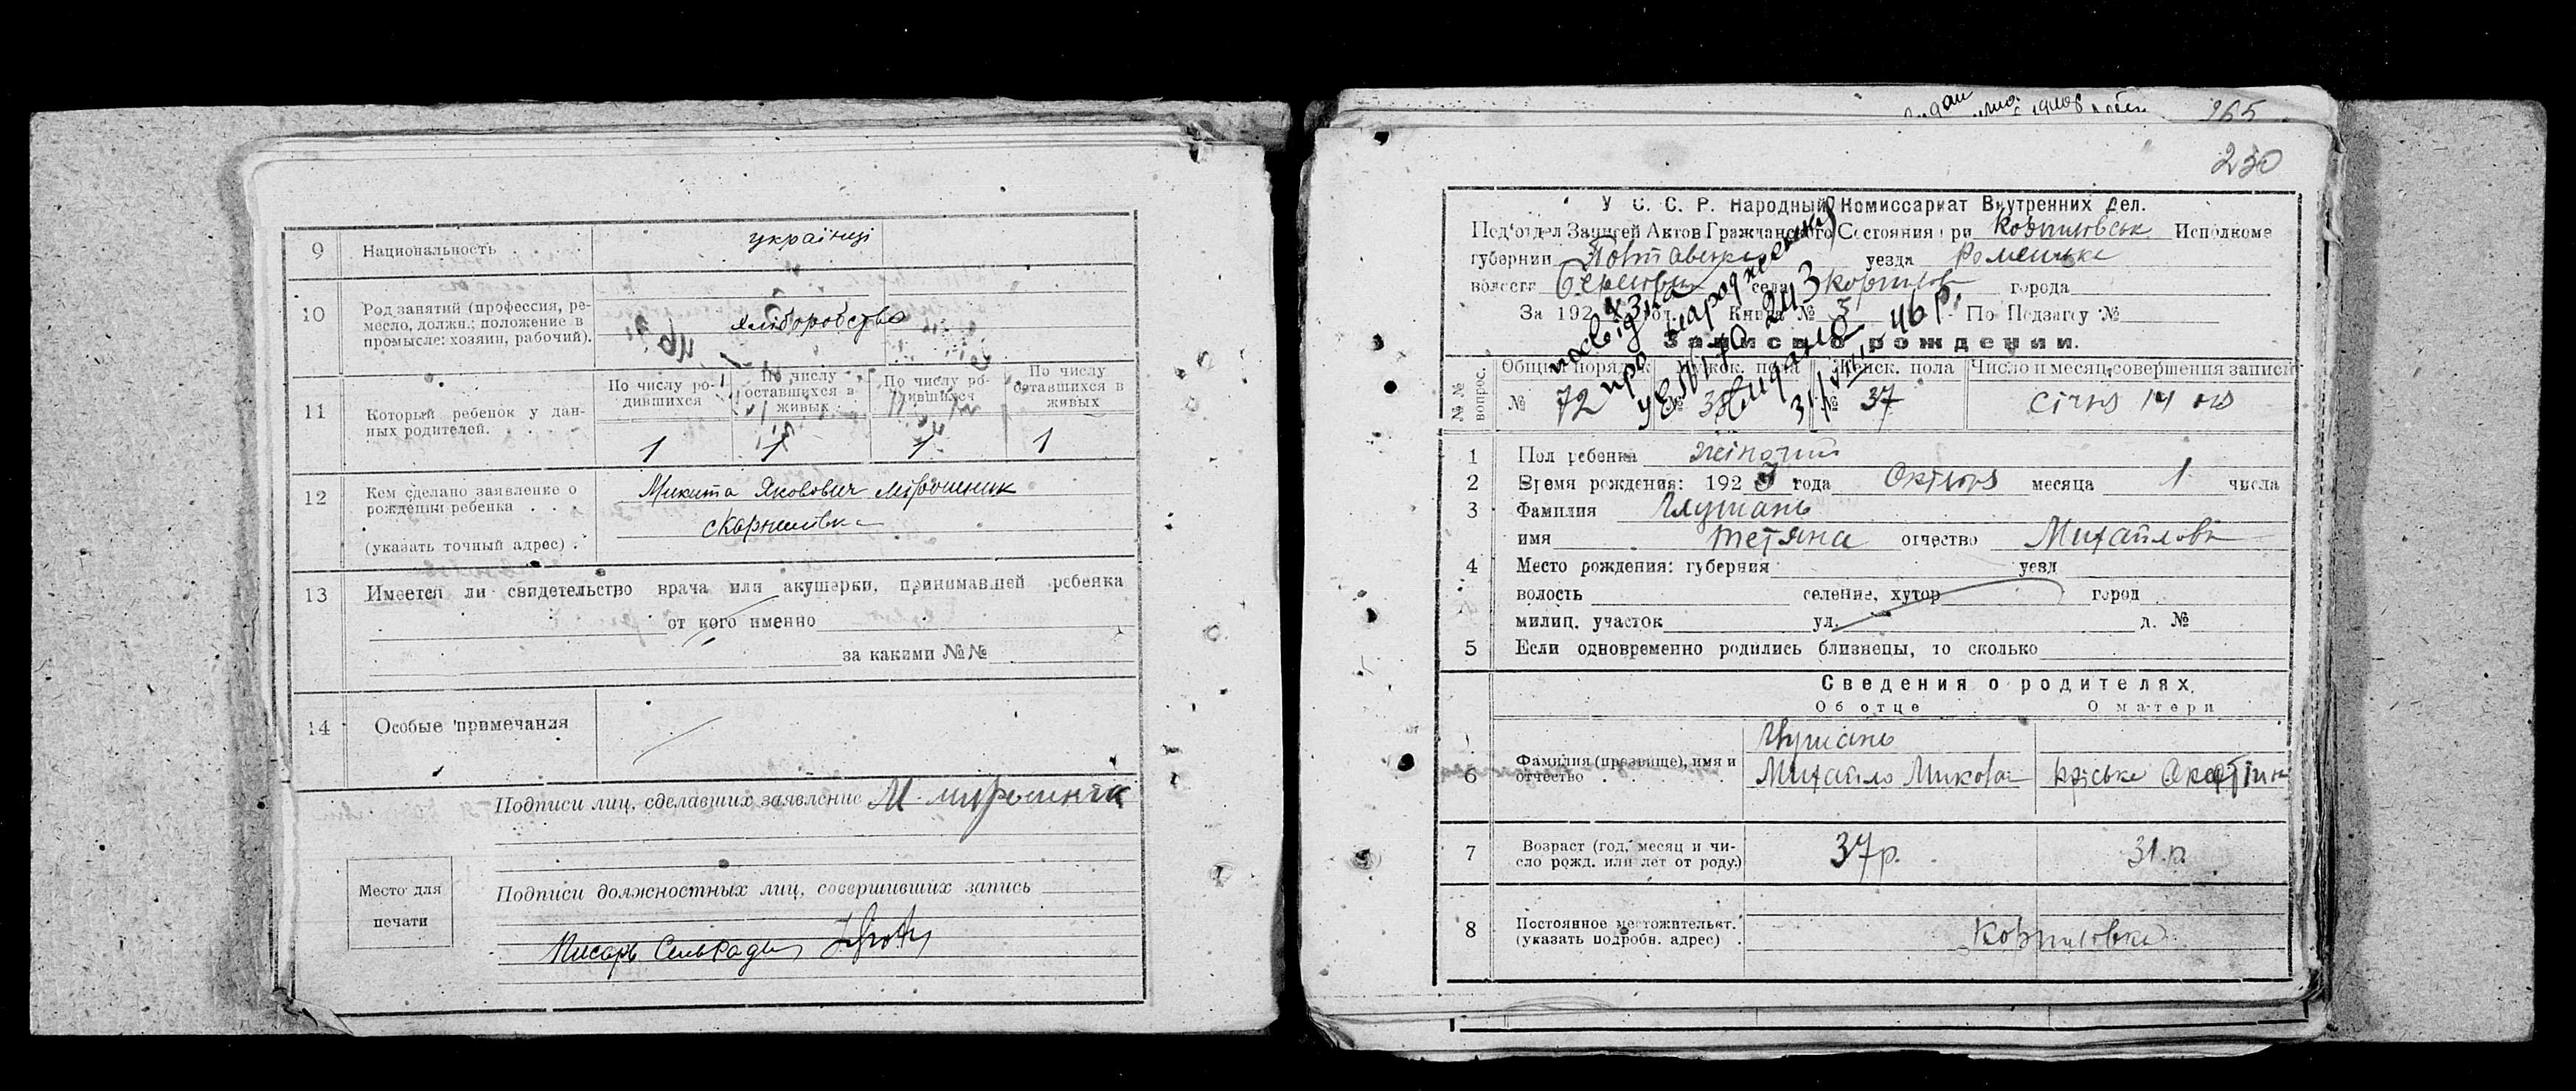 9 Национальность українці
10 Род занятий (профессия, ре-
месло, должн.; положение в
промысле: хозяин, рабочий). хліборобство
11 Который ребенок у дан-
ных родителей.
По числу ро-
дившихся
По числу
оставшихся в
живых
По числу ро-
дившихся
По числу
оставшихся в
живых
1 1 1 1
12 Кем сделано заявление о
рождении ребенка
(указать точный адрес)
Микита Якович Мірошник
с Коршилівка
13 Имеется ли свидетельство врача или акушерки, принимавшей ребенка
от кого именно
за какими №№
14 Особые примечания
Подписи лиц, сделавших заявление М. Мірошник
Место для
печати
Подписи должностных лиц, совершивших запись
Писарь Сельради
365
230
У С. С. Р. Народный Комиссариат Внутренних Дел.
Под'отдел Записей Актов Гражданского Состояния при Исполкоме
губернии Полтавська уезда Роменська
волости села города
За 1923 год. Книга № 3 По Подзагсу №
Запись о рождении.
посвідка
про народження
№ 243
Видано
31/VIII 46 р.
№№ вопрос.
Общий порядк. Мужск. пола Женск. пола Число и месяц совершения записи
№ 72 № 35 № 37 Січня 14 дня
1 Пол ребенка жіночий
2 Время рождения: 1923 года Октября месяца 1 числа
3 Фамилия Глушань
имя Тетяна отчество Михайловн
4 Место рождения: губерния уезд
волость селение, хутор город
милиц. участок ул. д. №
5 Если одновременно родились близнецы, то сколько
Сведения о родителях.
Об отце О матери
6 Фамилия (прозвище), имя и
отчество
Глушань
Михайло
7 Возраст (год, месяц и чи-
сло рожд. или лет от роду.) 37 р. 31 р.
8 Постоянное местожительст.
(указать подробн. адрес)